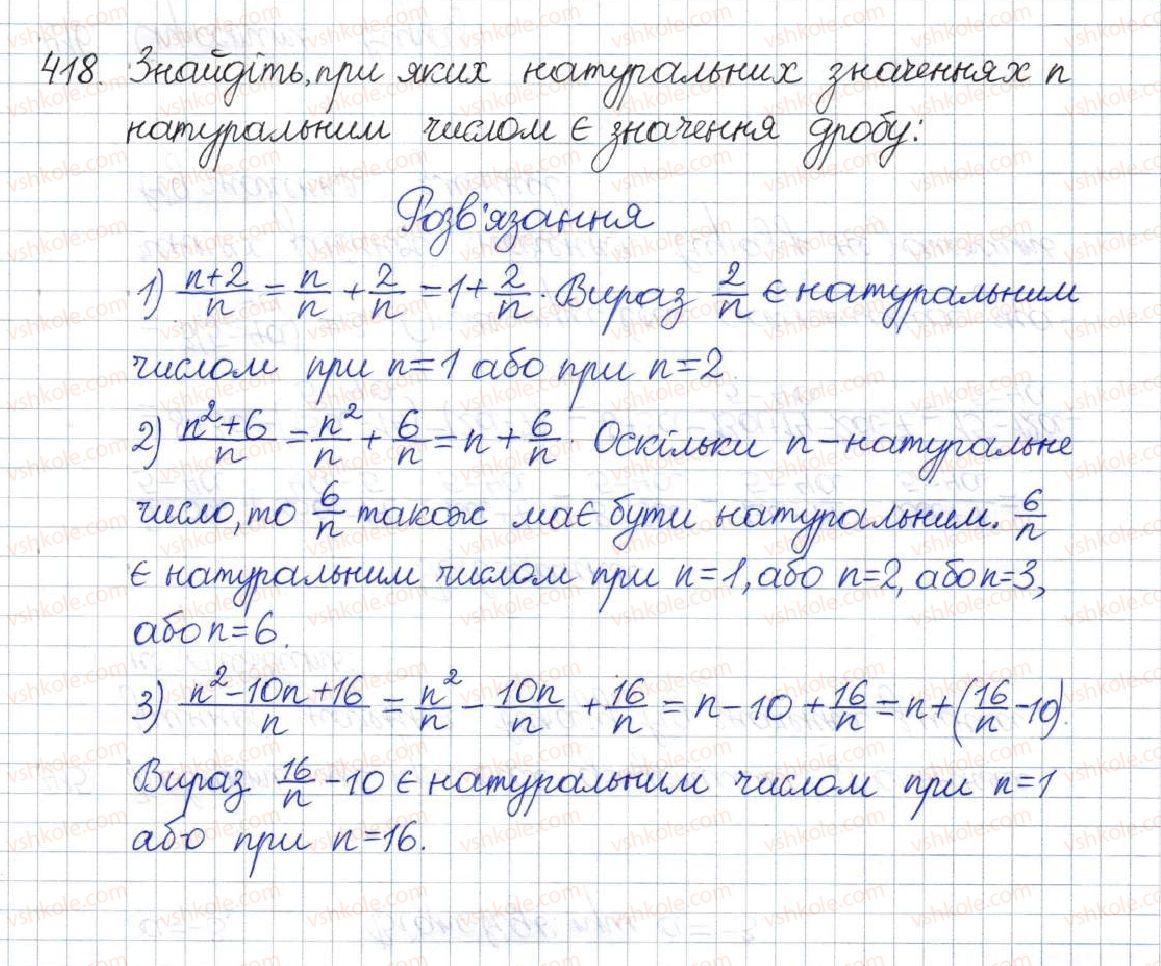 418. Знайдіть, при яких натуральних значеннях n
натуральним числом є значення дробу:
Розв'язання
1) (n+2)/n = n/n + 2/n = 1 + 2/n. Вираз 2/n є натуральним
числом при n=1 або при n=2
2) (n²+6)/n = n²/n + 6/n = n + 6/n. Оскільки n – натуральне
число, то 6/n також має бути натуральним. 6/n
є натуральним числом при n=1, або n=2, або n=3,
або n=6.
3) (n²-10n+16)/n = n²/n - 10n/n + 16/n = n - 10 + 16/n = n + (16/n - 10).
Вираз 16/n - 10 є натуральним числом при n=1
або при n=16.